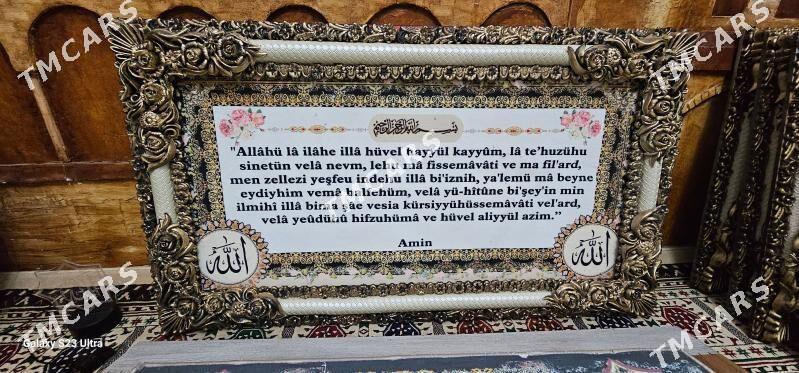 TMCARS
TMCARS
TMCARS
بسم الله الرحمن الرحيم
"Allâhü lâ ilâhe illâ hüvel hayyül kayyûm, lâ te'huzühu
sinetün velâ nevm, lehu mâ fissemâvâti ve ma fil'ard,
men zellezi yeşfeu indehu illâ bi'iznih, ya'lemü mâ beyne
eydiyhim vemâ halfehüm, velâ yü-hîtûne bi'şey'in min
ilmihî illâ bima şâe vesia kürsiyyühüssemâvâti vel'ard,
velâ yeûdühû hifzuhümâ ve hüvel aliyyül azim."
Amin
الله
الله
TMCARS
TMCARS
TMCARS
TMCARS
TMCARS
TMCARS
Galaxy S23 Ultra